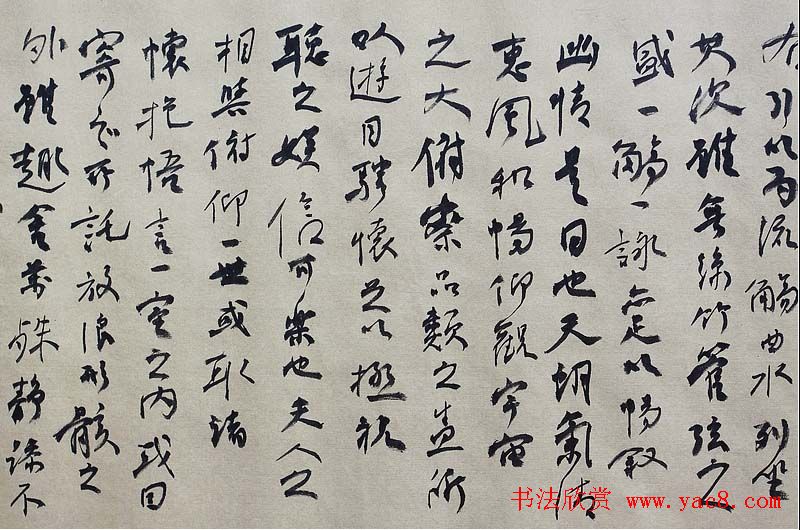 右引以為流觴曲水列坐
其次雖無絲竹管弦之
盛一觴一詠亦足以暢敘
幽情是日也天朗氣清
惠風和暢仰觀宇宙
之大俯察品類之盛所
以遊目騁懷足以極視
聽之娛信可樂也夫人之
相與俯仰一世或取諸
懷抱悟言一室之內或因
寄所託放浪形骸之
外雖趣舍萬殊靜躁不
书法欣赏 www.yac8.com